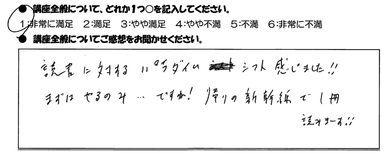 ● 講座全般について、どれか1つ○を記入してください。
1:非常に満足 2:満足 3:やや満足 4:やや不満 5:不満 6:非常に不満
● 講座全般についてご感想をお聞かせください。
読書に対するパラダイムシフト感じました!!
まずはやるのみ…ですね! 帰りの新幹線で1冊
読みまーす!!